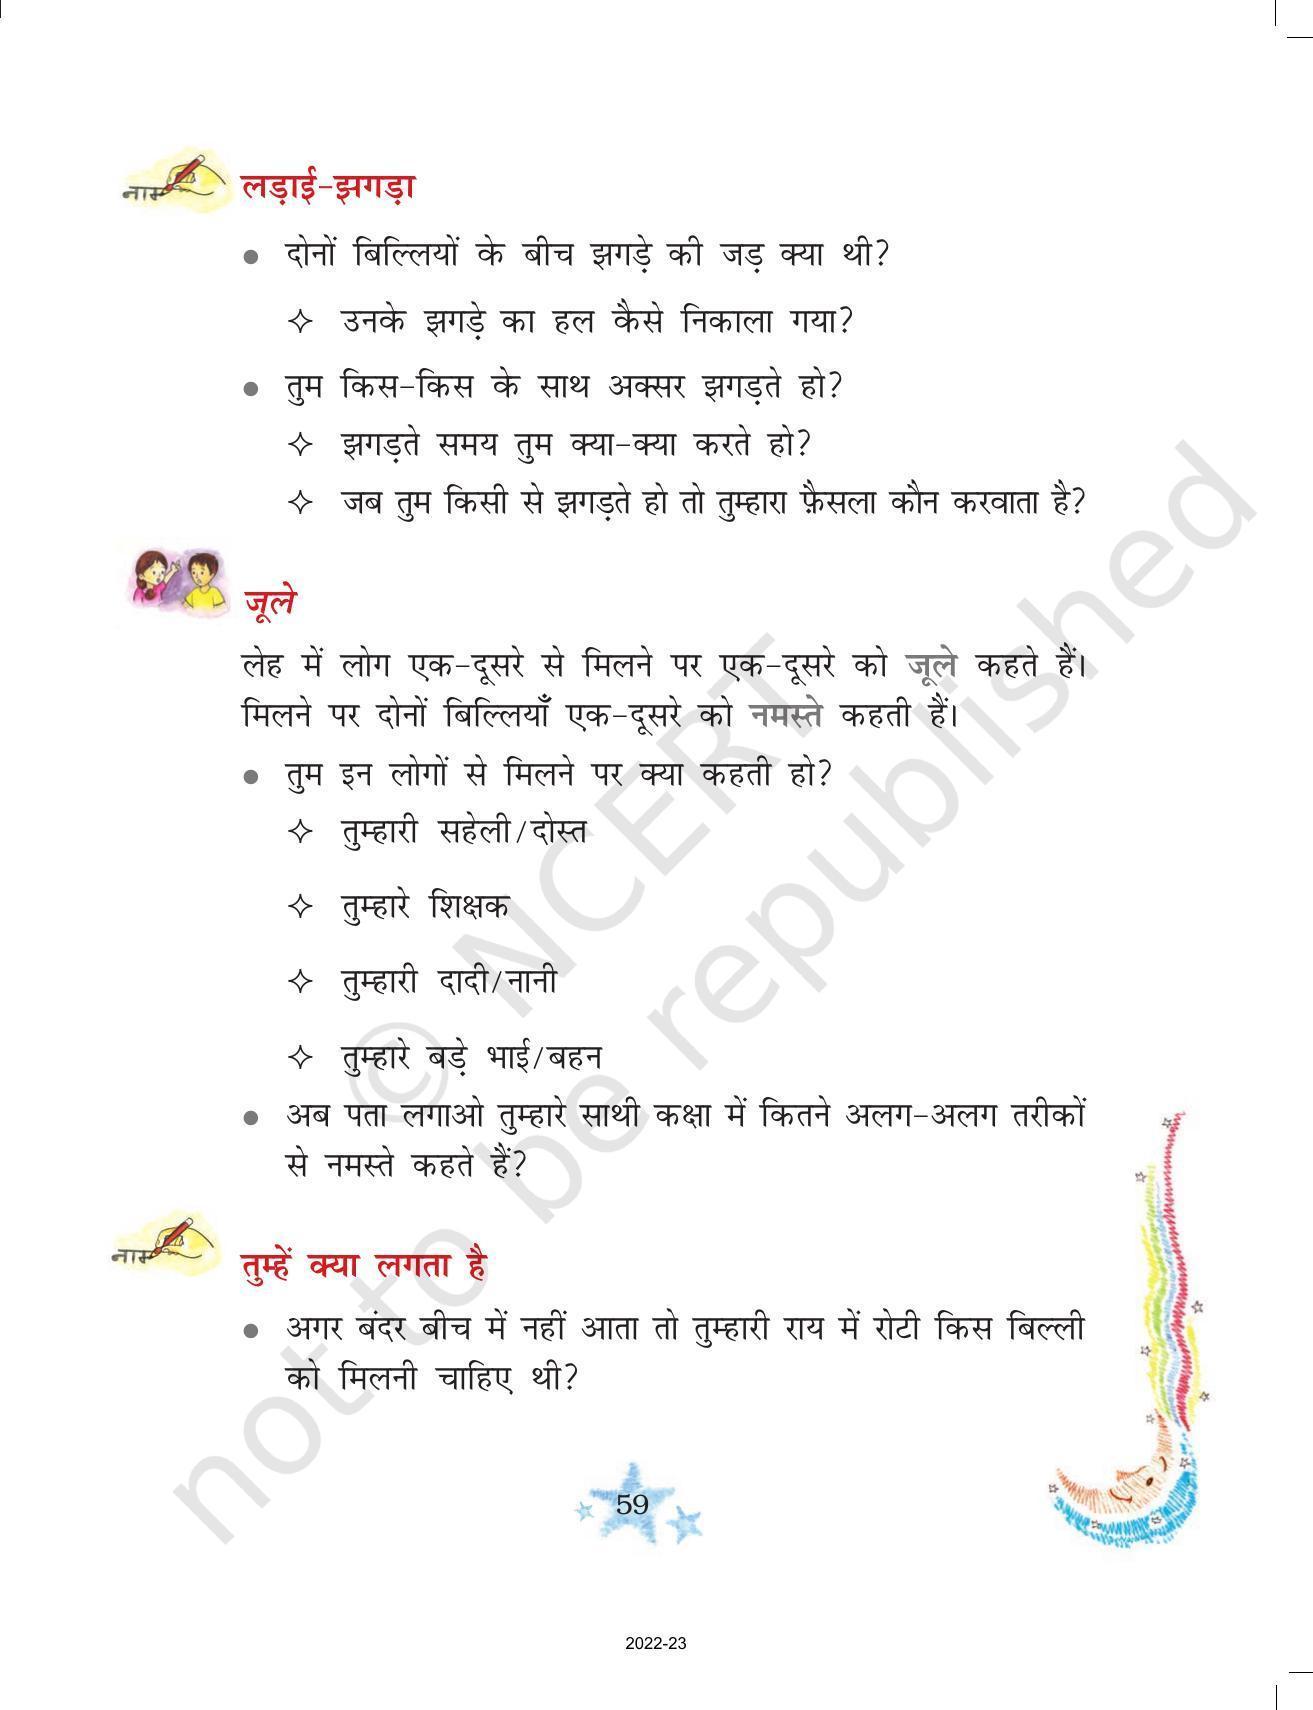 नाम
लड़ाई-झगड़ा
● दोनों बिल्लियों के बीच झगड़े की जड़ क्या थी?
✧ उनके झगड़े का हल कैसे निकाला गया?
● तुम किस-किस के साथ अक्सर झगड़ते हो?
✧ झगड़ते समय तुम क्या-क्या करते हो?
✧ जब तुम किसी से झगड़ते हो तो तुम्हारा फ़ैसला कौन करवाता है?
जूले
लेह में लोग एक-दूसरे से मिलने पर एक-दूसरे को जूले कहते हैं।
मिलने पर दोनों बिल्लियाँ एक-दूसरे को नमस्ते कहती हैं।
● तुम इन लोगों से मिलने पर क्या कहती हो?
✧ तुम्हारी सहेली/दोस्त
✧ तुम्हारे शिक्षक
✧ तुम्हारी दादी/नानी
✧ तुम्हारे बड़े भाई/बहन
● अब पता लगाओ तुम्हारे साथी कक्षा में कितने अलग-अलग तरीकों
से नमस्ते कहते हैं?
नाम
तुम्हें क्या लगता है
● अगर बंदर बीच में नहीं आता तो तुम्हारी राय में रोटी किस बिल्ली
को मिलनी चाहिए थी?
59
2022-23
© NCERT
not to be republished